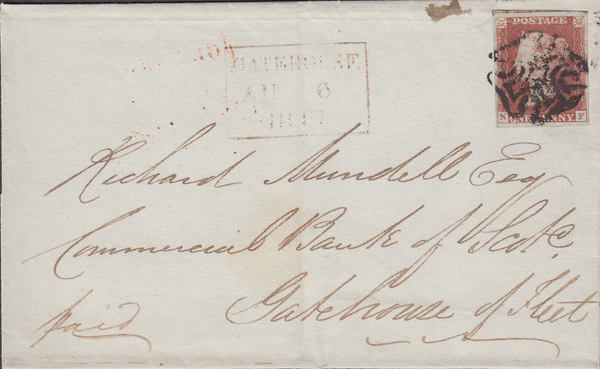 POSTAGE
N ONE PENNY F
GATEHOUSE
AU 6
Richard Mundell Esq
Commercial Bank of Scotd.
Gatehouse of Fleet
paid